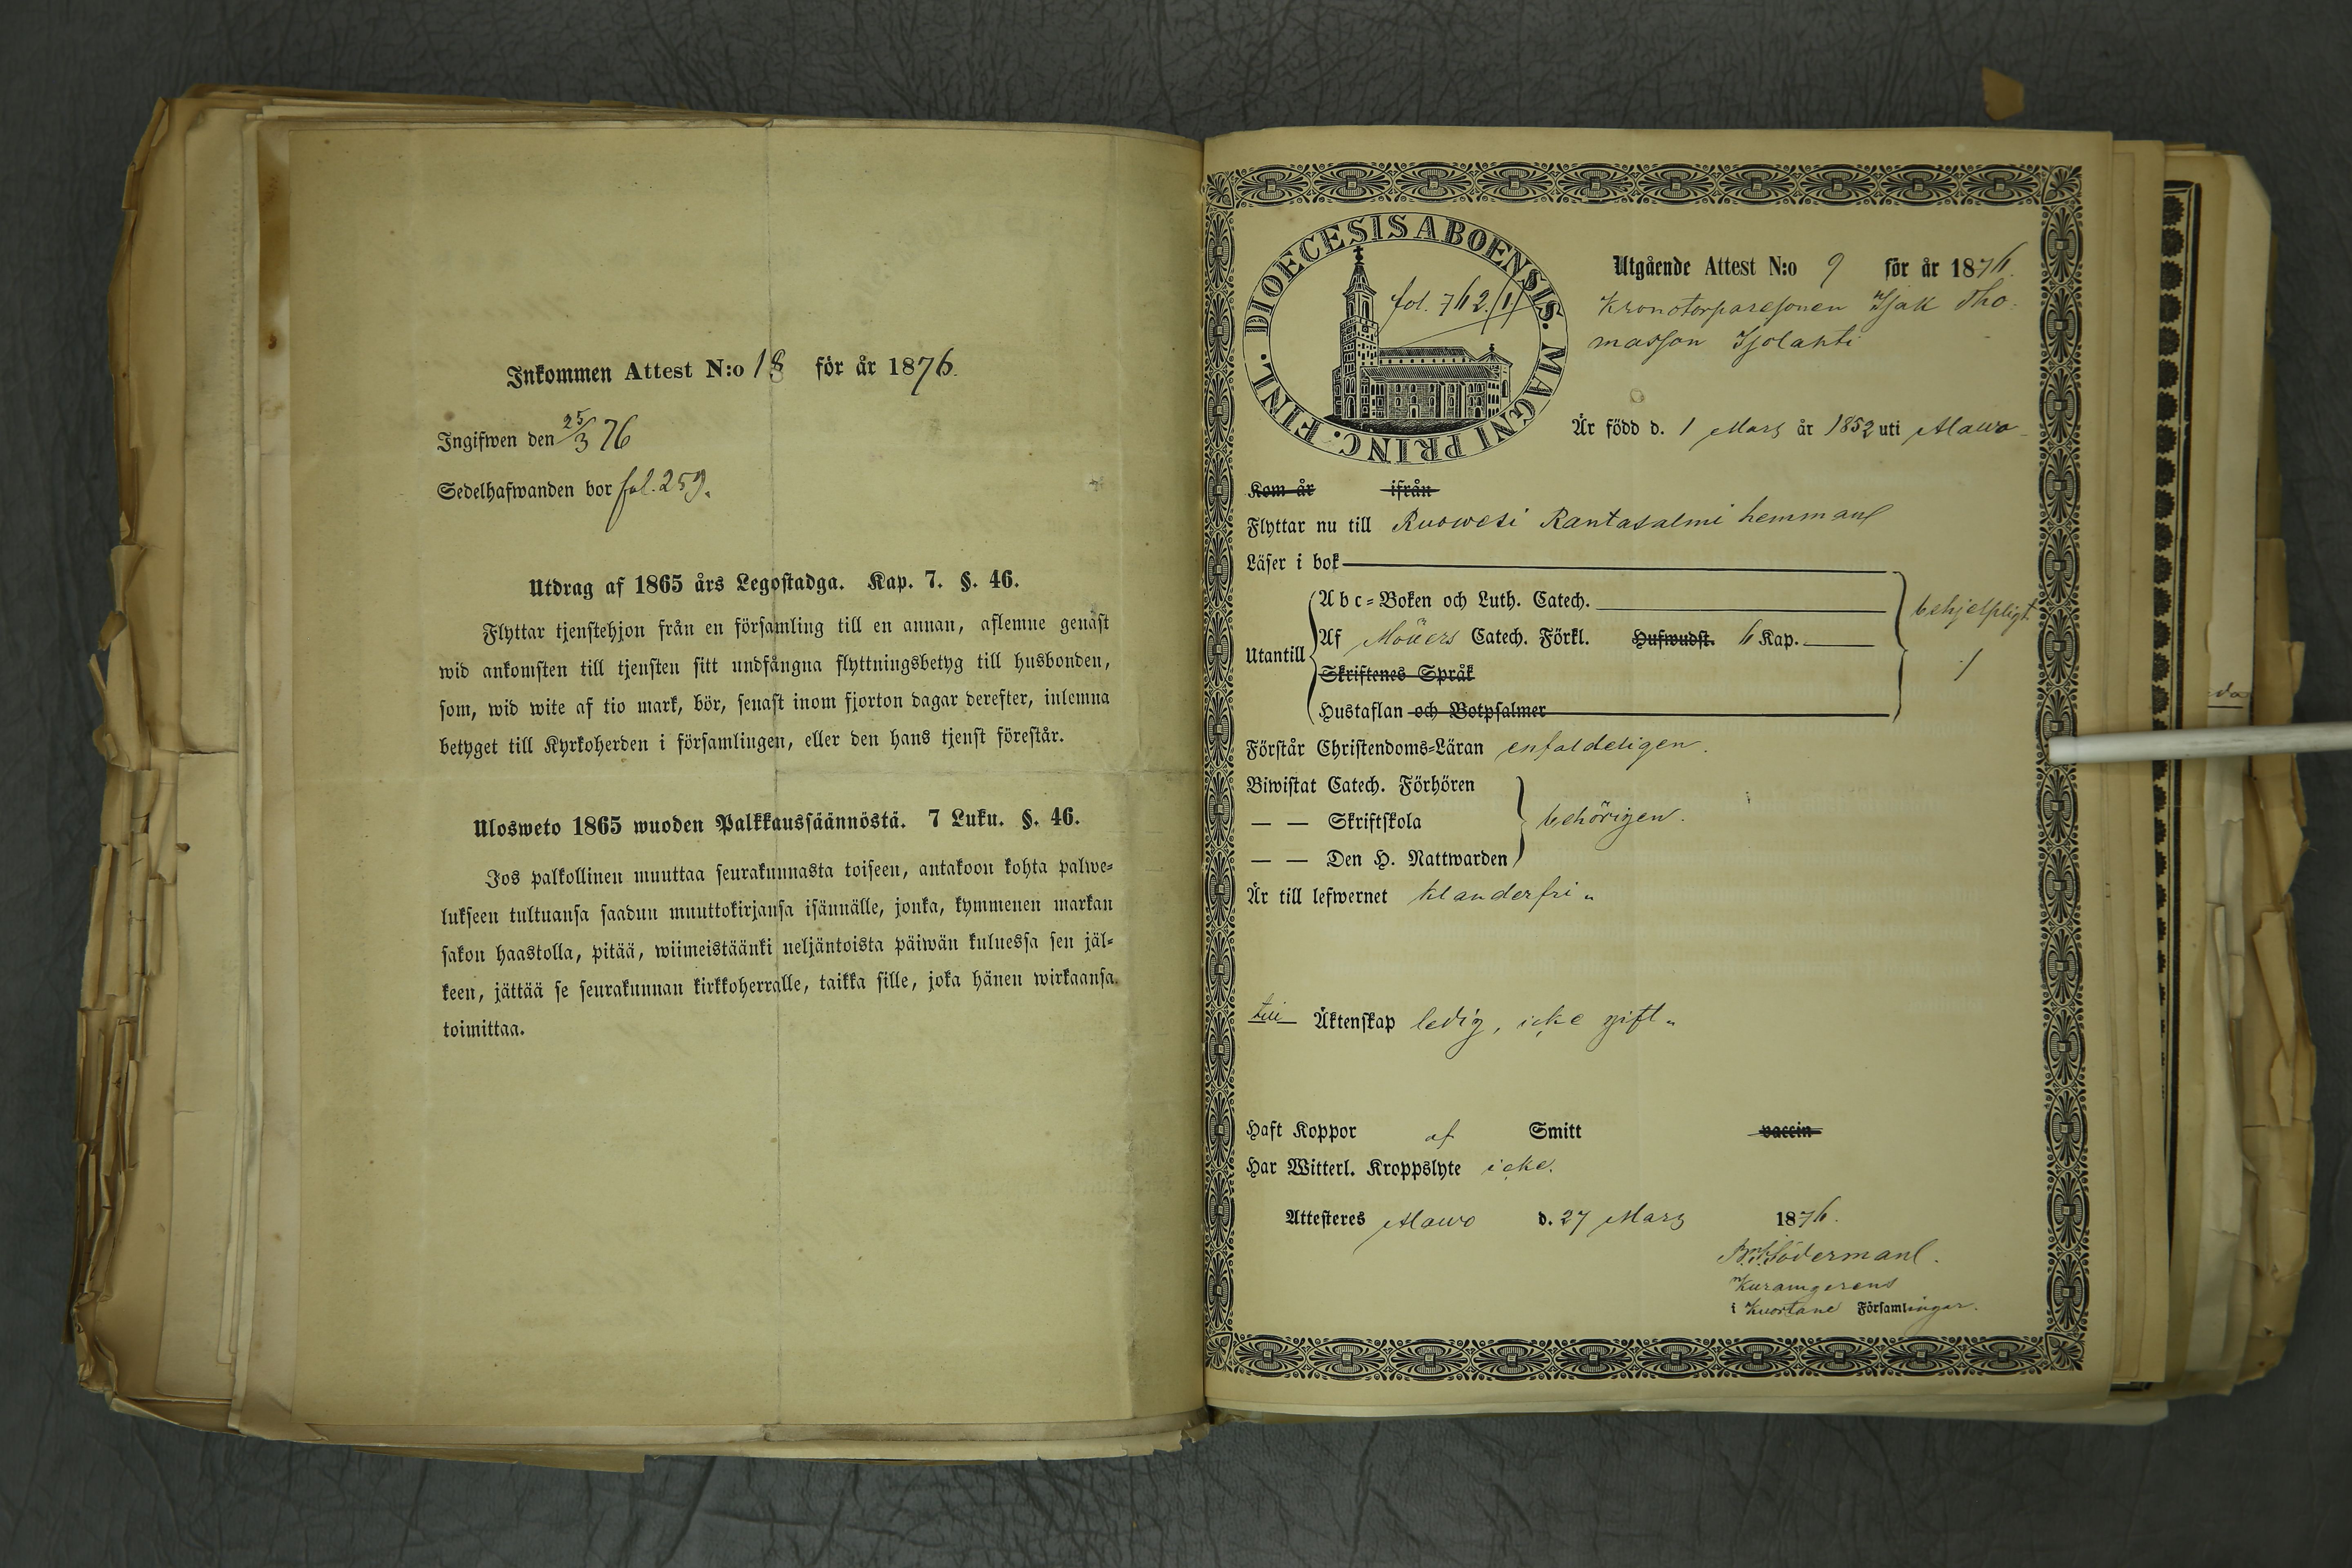 Inkommen Attest N:o 18 för år 1876.
Ingifwen den 25/3 76
Sedelhafwanden bor fol. 259.
Utdrag af 1865 års Legostadga. Kap. 7. §. 46.
Flyttar tjenstehjon från en församling till en annan, aflemne genast
wid ankomsten till tjensten sitt undfångna flyttningsbetyg till husbonden,
som, wid wite af tio mark, bör, senast inom fjorton dagar derefter, inlemna
betyget till Kyrkoherden i församlingen, eller den hans tjenst förestår.
Ulosweto 1865 wuoden Palkkaussäännöstä. 7 Luku. §. 46.
Jos palkollinen muuttaa seurakunnasta toiseen, antakoon kohta palwe-
lukseen tultuansa saadun muuttokirjansa isännälle, jonka, kymmenen markan
sakon haastolla, pitää, wiimeistäänki neljäntoista päiwän kuluessa sen jäl-
keen, jättää se seurakunnan kirkkoherralle, taikka sille, joka hänen wirkaansa
toimittaa.
DIOECESIS ABOENSIS. MAGNI PRINC. FINL.
fol. 762.
Utgående Attest N:o 9 för år 1876.
Kronotorparesonen Isak Tho-
masson Isolahti
Är född d. 1 Mars år 1852 uti Alawo
Kom år ifrån
Flyttar nu till Ruowesi Rantasalmi hemman
Läser i bok
Abc-Boken och Luth. Catech.
behjelpligt
Utantill
Af Catech. Förkl. Hufwudst. 6 Kap.
Skriftenes Språk
Hustaflan och Botpsalmer
Förstår Christendoms-Läran enfaldeligen.
Biwistat Catech. Förhören
— — Skriftskola
behörigen.
— — Den H. Nattwarden
Är till lefwernet klanderfri
till Äktenskap ledig, icke gift
Haft Koppor af Smitt vaccin
Har Witterl. Kroppslyte icke.
Attesteres Alawo d. 27 Mars 1876.
Södermanl.
i Kuortane Församlingar.